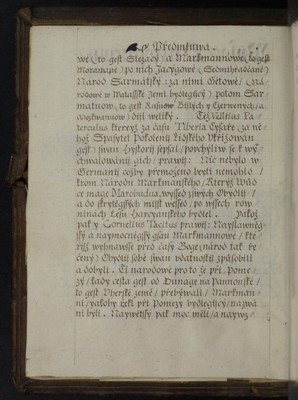 Předmluwa.
we (to gest Slezacy) a Markmannowe (to gest
Morawane) po nich Jacygowe (Sedmihradčané)
Narod Sarmatský: za nimi Getowe / Na-
rodowe w Walasské Zemi bydlegijcý) potom Sar-
matuow (to gest Rusuow Bijlých y Czerwených / a
dijl weliký. Též Vellius Pa-
terculus kterýž za času Tiberia Cysaře (za ně-
hož Spasytel Pokolenij Lidského Vkřižowán
gest) swau Hystorij sepsal / pochybiw se k wy-
chwalowánij gich / prawij: Nic nebylo w
Germanij cožby přemoženo beyti nemohlo /
krom Národu Markmanského / Který
ze swých Obydlij /
a do skrytěgssých mijst wessed / po wssech row-
ninách Lesu Harcyanského bydlel. Jakož
pak y Cornelius Tacitus prawij: Nayslawněg-
ssý a naymocněgssý gsau Markmannowé / kte-
řijž wyhnawsse přéd časy Boge (národ tak ře-
čený) Obydlij sobě swau vdatnostij způsobili
a dobyli. Ti národowé proto že při Pome-
zý / kady cesta gest od Dunage na Pannonské /
to gest Vherské země / přebýwali / Markman-
ni / yakoby řekl při Pomezý bydlegijcý / nazwá-
ni byli. Naywětssý pak moc měli / a naywz-